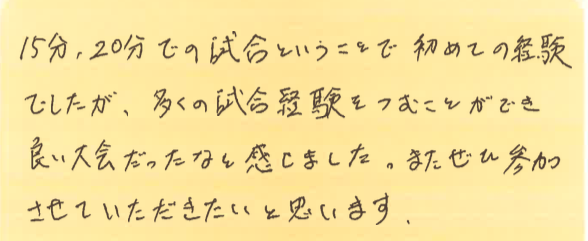 15分,20分での試合ということで初めての経験
でしたが、多くの試合経験をつむことができ
良い大会だったなと感じました。またぜひ参加
させていただきたいと思います.